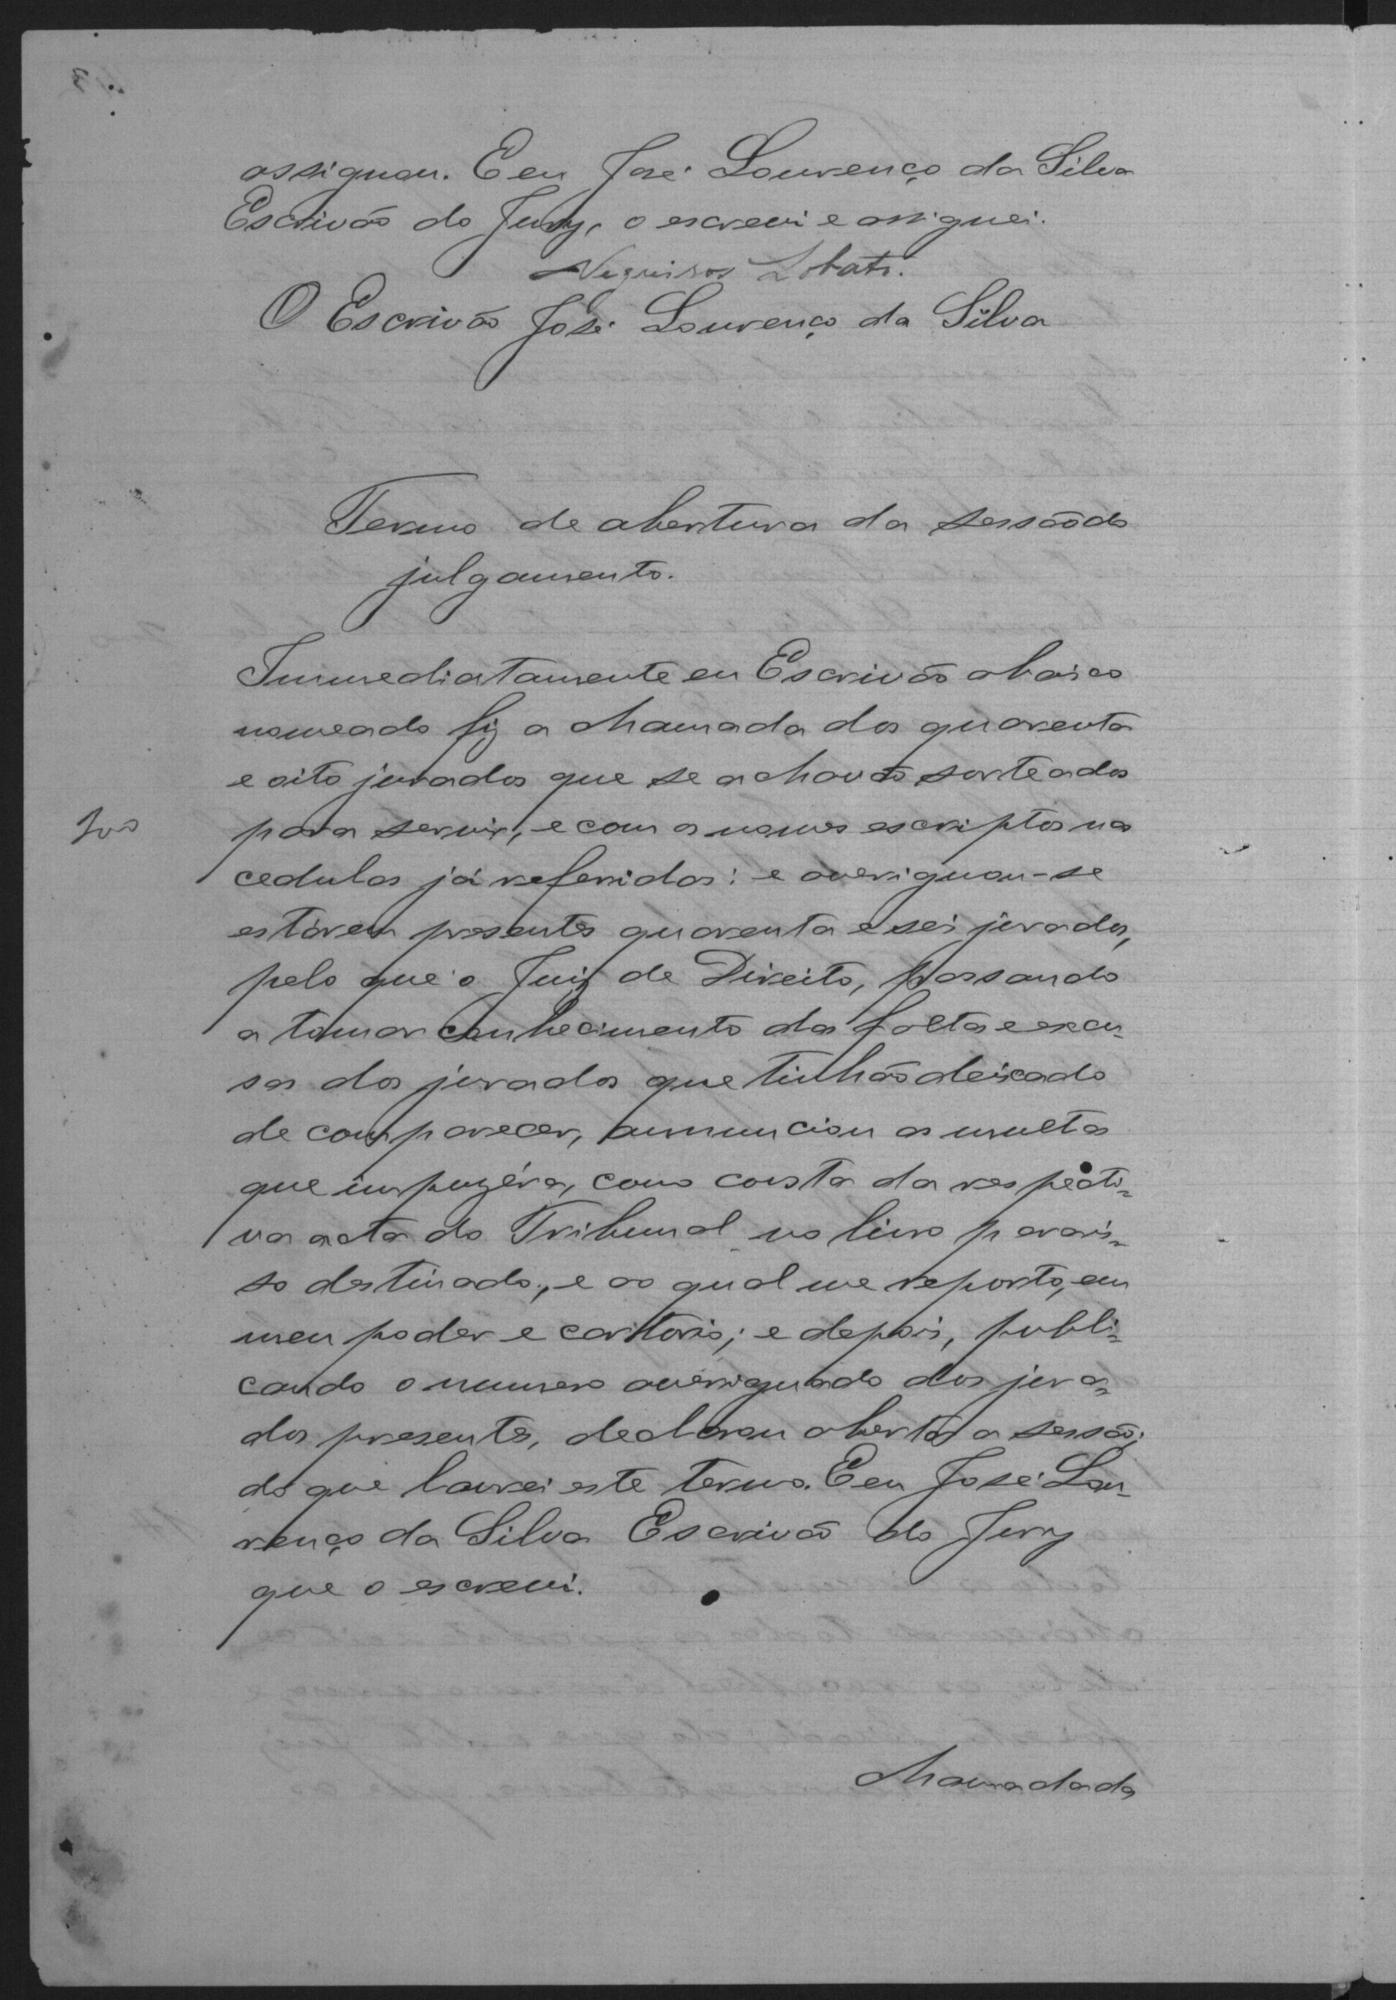 assignou. E eu José Lourenço da Silva
Escrivão do Jury, o escrevi e assignei.
Nogueiros Lobato.
O Escrivão José Lourenço da Silva
Termo de abertura da sessão do
julgamento.
Immediatamente eu Escrivão abaixo
nomeado fiz a chamada dos quarenta
e oito jurados que se achavão sorteados
para servir, e com os nomes escriptos nas
cedulas já referidas: e averiguou-se
estárem presentes quarenta e seis jurados,
pelo que o Juiz de Direito, passando
a tomar conhecimento das faltas e escu-
sas dos jurados que tinhão deixado
de comparecer, annunciou as multas
que impuzéra, como consta da respecti=
va acta do Tribunal no livro para is=
so destinado, e ao qual me reporto, em
meu poder e cartorio; e depois, publi=
cando o numero averiguado dos jura=
dos presentes, declarou aberta a sessão;
do que lavrei este termo. E eu José Lou-
renço da Silva Escrivão do Jury
que o escrevi.
Chamada da